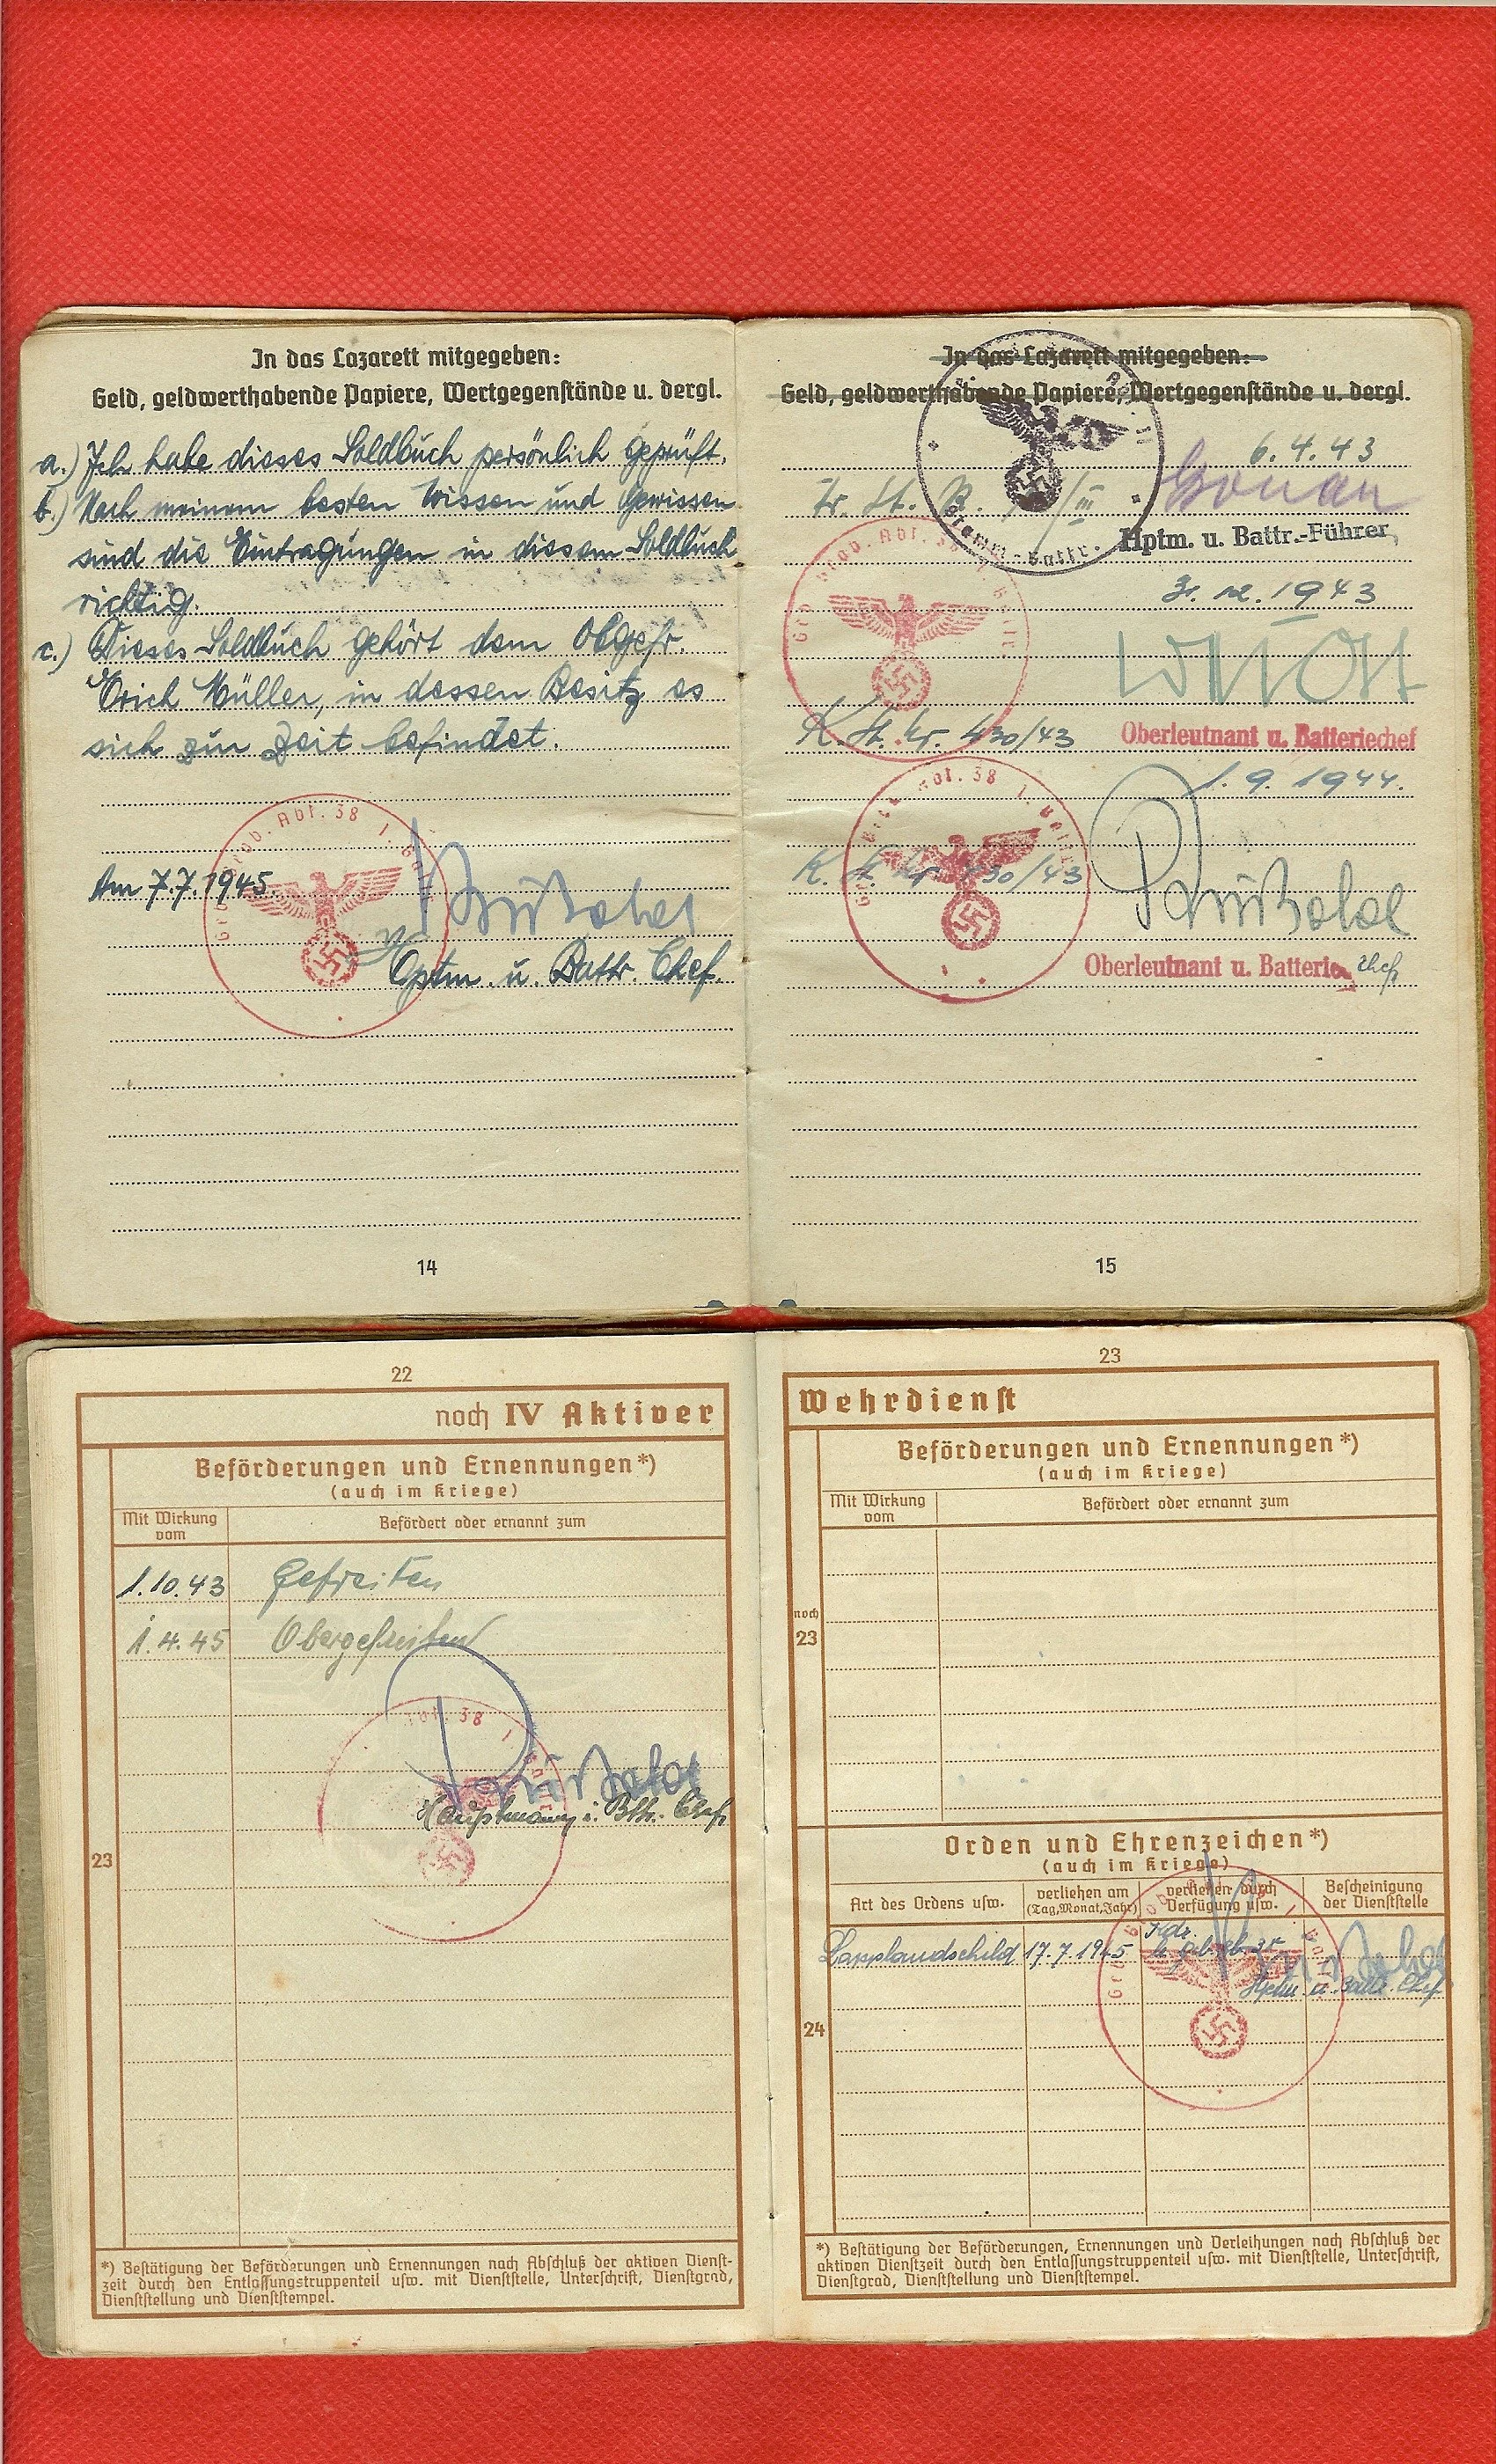 In das Lazarett mitgegeben:
Geld, geldwerthabende Papiere, Wertgegenstände u. dergl.
a.) Ich habe dieses Soldbuch persönlich geprüft.
b.) Nach meinem besten Wissen und Gewissen
sind die Eintragungen in diesem Soldbuch
richtig.
c.) Dieses Soldbuch gehört dem Obgefr.
Erich Müller, in dessen Besitz es
sich zur Zeit befindet.
Abt. 38 1.
Am 7.7.1945.
Hptm. u. Battr. Chef.
14
In das Lazarett mitgegeben:
Geld, geldwerthabende Papiere, Wertgegenstände u. dergl.
6.4.43
Stamm-Battr.
Hptm. u. Battr.-Führer
Abt. 38 1. Battr.
1943
K. St. Nr. 430/43
Oberleutnant u. Batteriechef
1.9.1944.
Abt. 38 1. Battr.
K. St. Nr. 430/43
Oberleutnant u. Batterie Chef
15
22
noch IV Aktiver
Beförderungen und Ernennungen*)
(auch im Kriege)
Mit Wirkung vom
Befördert oder ernannt zum
1.10.43 Gefreiten
1.4.45 Obergefreiten
Abt. 38 1. Battr.
Hauptmann u. Bttr. Chef
23
*) Bestätigung der Beförderungen und Ernennungen nach Abschluß der aktiven Dienst-
zeit durch den Entlassungstruppenteil usw. mit Dienststelle, Unterschrift, Dienstgrad,
Dienststellung und Dienststempel.
23
Wehrdienst
Beförderungen und Ernennungen*)
(auch im Kriege)
Mit Wirkung vom
Befördert oder ernannt zum
noch
23
Orden und Ehrenzeichen*)
(auch im Kriege)
Art des Ordens usw.
verliehen am
(Tag, Monat, Jahr)
verliehen durch
Verfügung usw.
Bescheinigung
der Dienststelle
Lapplandschild 17.7.1945
Hptm. u. Battr. Chef
24
*) Bestätigung der Beförderungen, Ernennungen und Verleihungen nach Abschluß der
aktiven Dienstzeit durch den Entlassungstruppenteil usw. mit Dienststelle, Unterschrift,
Dienstgrad, Dienststellung und Dienststempel.